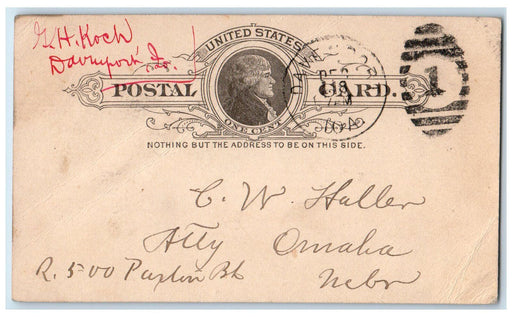 G.H. Koch
Davenport Io.
UNITED STATES
POSTAL CARD.
ONE CENT
NOTHING BUT THE ADDRESS TO BE ON THIS SIDE.
DAVENPORT
DEC
18
IOWA
1
C. W. Haller
Atty Omaha
R. 500 Paxton Bk Nebr